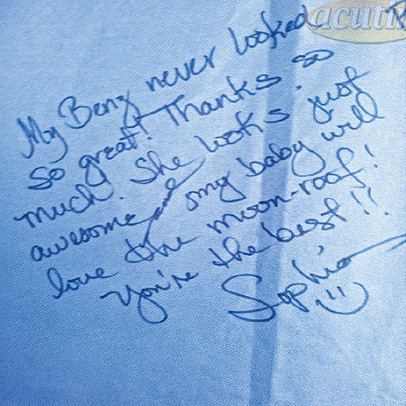 acuti
My Benz never looked
so great! Thanks so
much! She looks just
awesome and my baby will
love the moon-roof!
You're the best!!
Sophia